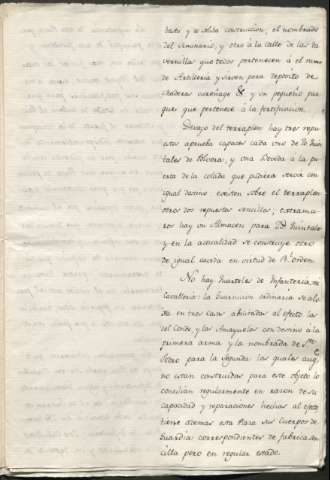 basto y de solida construccion; el nombrado
del Seminario, y otro a la Calle de las Ta
vernillas que todos pertenecen á el ramo
de Artilleria y sirven para deposito de
Maderas cureñage &c y un pequeño par
que que pertenece á la fortificacion.
Devajo del terraplen hay tres repu
estos aprueba capaces cada uno de 70 Quin
tales de Polvora, y una Hermita a la pu
erta de la colada que pudiera servir con
igual destino existen sobre el terraplen
otros dos repuestos sencillos; extramu
ros hay un Almacen para Quintales
y en la actualidad se construye otro
de igual cavida en virtud de Rl. orden.
No hay Quarteles de Infanteria, ni
Cavalleria: la Guarnicion ordinaria se alo
ja en tres casas abilitadas al efecto las
del Conde, y las Anayuelas con destino á la
primera arma y la nombrada de Sn.
Pedro para la segunda las quales aunq.
no estan construidas para este objeto lo
concilian regularmente en razon de su
capacidad y reparaciones hechas al efecto
tiene ademas esta Plaza sus cuerpos de
Guardia correspondientes de fabrica sen
cilla pero en regular estado.